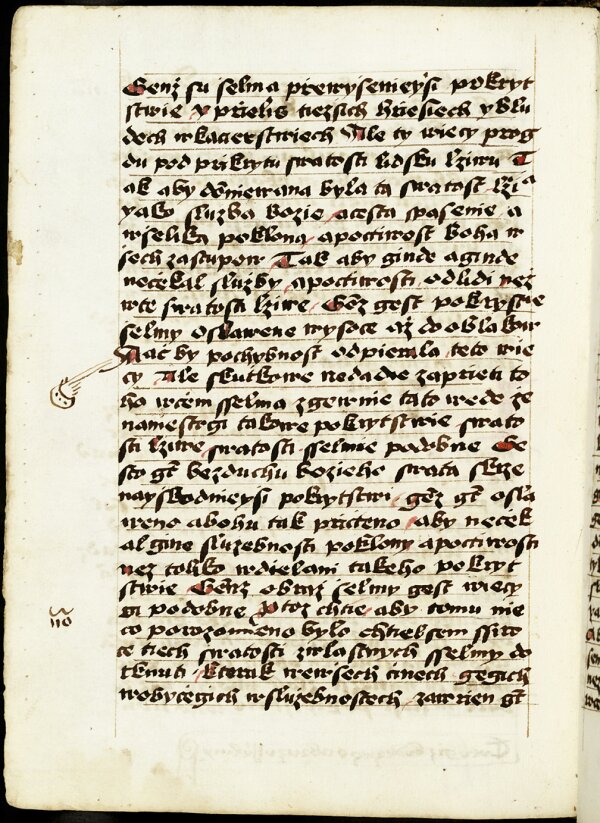 Genž su ſelma přewyſenieyſi pokryt
ſtwie y přieliš tiezſich hřieſiech y blu
dech w kacierſtwiech Ale ty wiecy prog
du pod přikrytu ſwatoſti lidſku lziwu T
ak aby domiewana byla ta ſwatoſt lzia
yako ſluzba bozie a ceſta ſpaſenie a
w ſelika poklona a poctiwoſt boha w
ſech zaſtupow Tak aby ginde a ginde
nečekal ſluzby a poctiwoſti od lidi nez
w te ſwatoſti lziwe Genz geſt pokryſtwie
ſelmy oſlawene wyſoce až do oblakow
Nac by pochybnoſt odpierala teto wie
cy Ale ſkutkowe nedadie zaprieti to
ho w cem ſſelma zgewnie tato wede ze
namieſtrgi takowe pokrytſtwie ſwato
ſti lziwe ſwatoſti ſſelmie podobne Ge
ſto gt bez duchu bozieho ſwata ſkrze
nayſkodnieyſi pokrytſtwi genz gt oſla
weno a bohu tak pricteno aby necek
al gine ſluzebnoſti poklony a poctiwoſti
nez toliko w dielani takeho pokryt
ſtwie Genz obraz ſelmy geſt wiecy
gi podobne Protoz chtie aby tomu nie
co porozomieno bylo chtielſem ſſiro
ce tiech ſwatoſti zwlaſtnych ſſelmy do
tknuti kterak we wſech činech gegich
w obycegich w ſluzebnoſtech zawrien gt
110